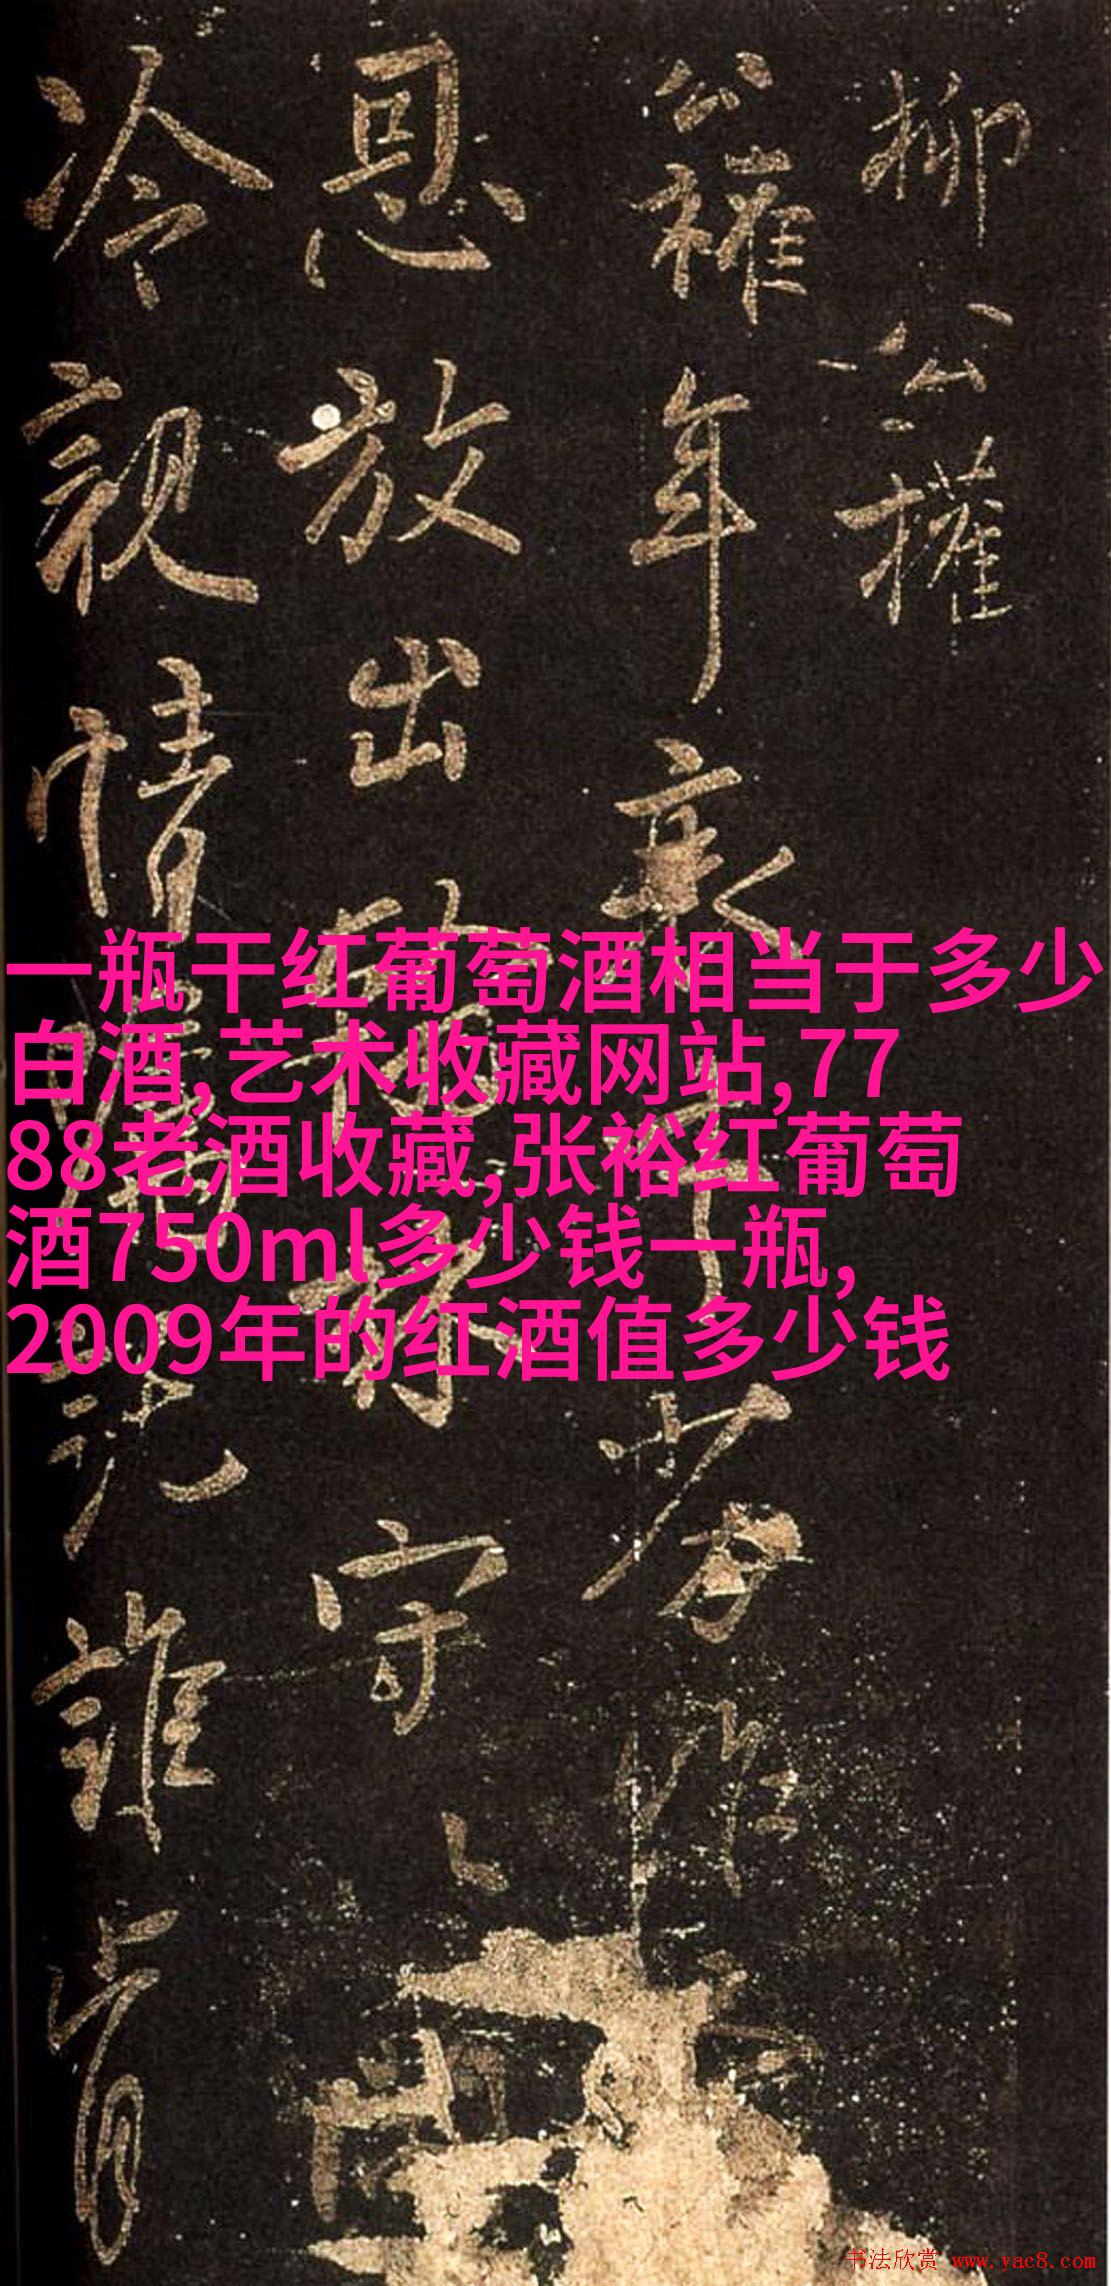 柳公權
公權年衰才劣昨
恩放出翰林守
冷親情嘱託誰肯
一瓶干红葡萄酒相当于多少
白酒,艺术收藏网站,77
88老酒收藏,张裕红葡萄
酒750ml多少钱一瓶,
2009年的红酒值多少钱
书法欣赏 www.yac8.com